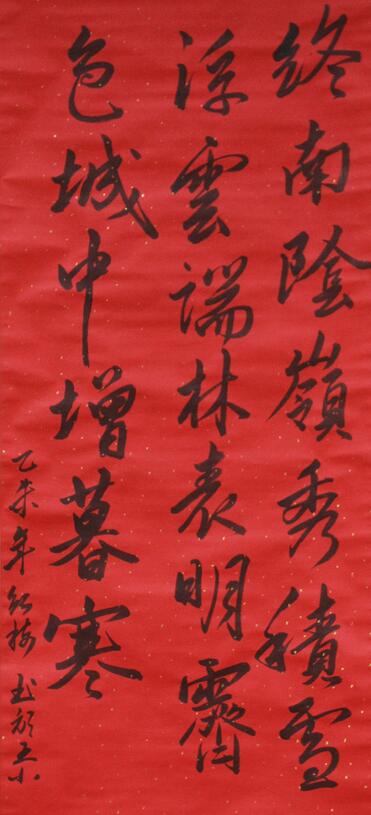 終南陰嶺秀積雪
浮雲端林表明霽
色城中增暮寒
乙未年紅梅書於